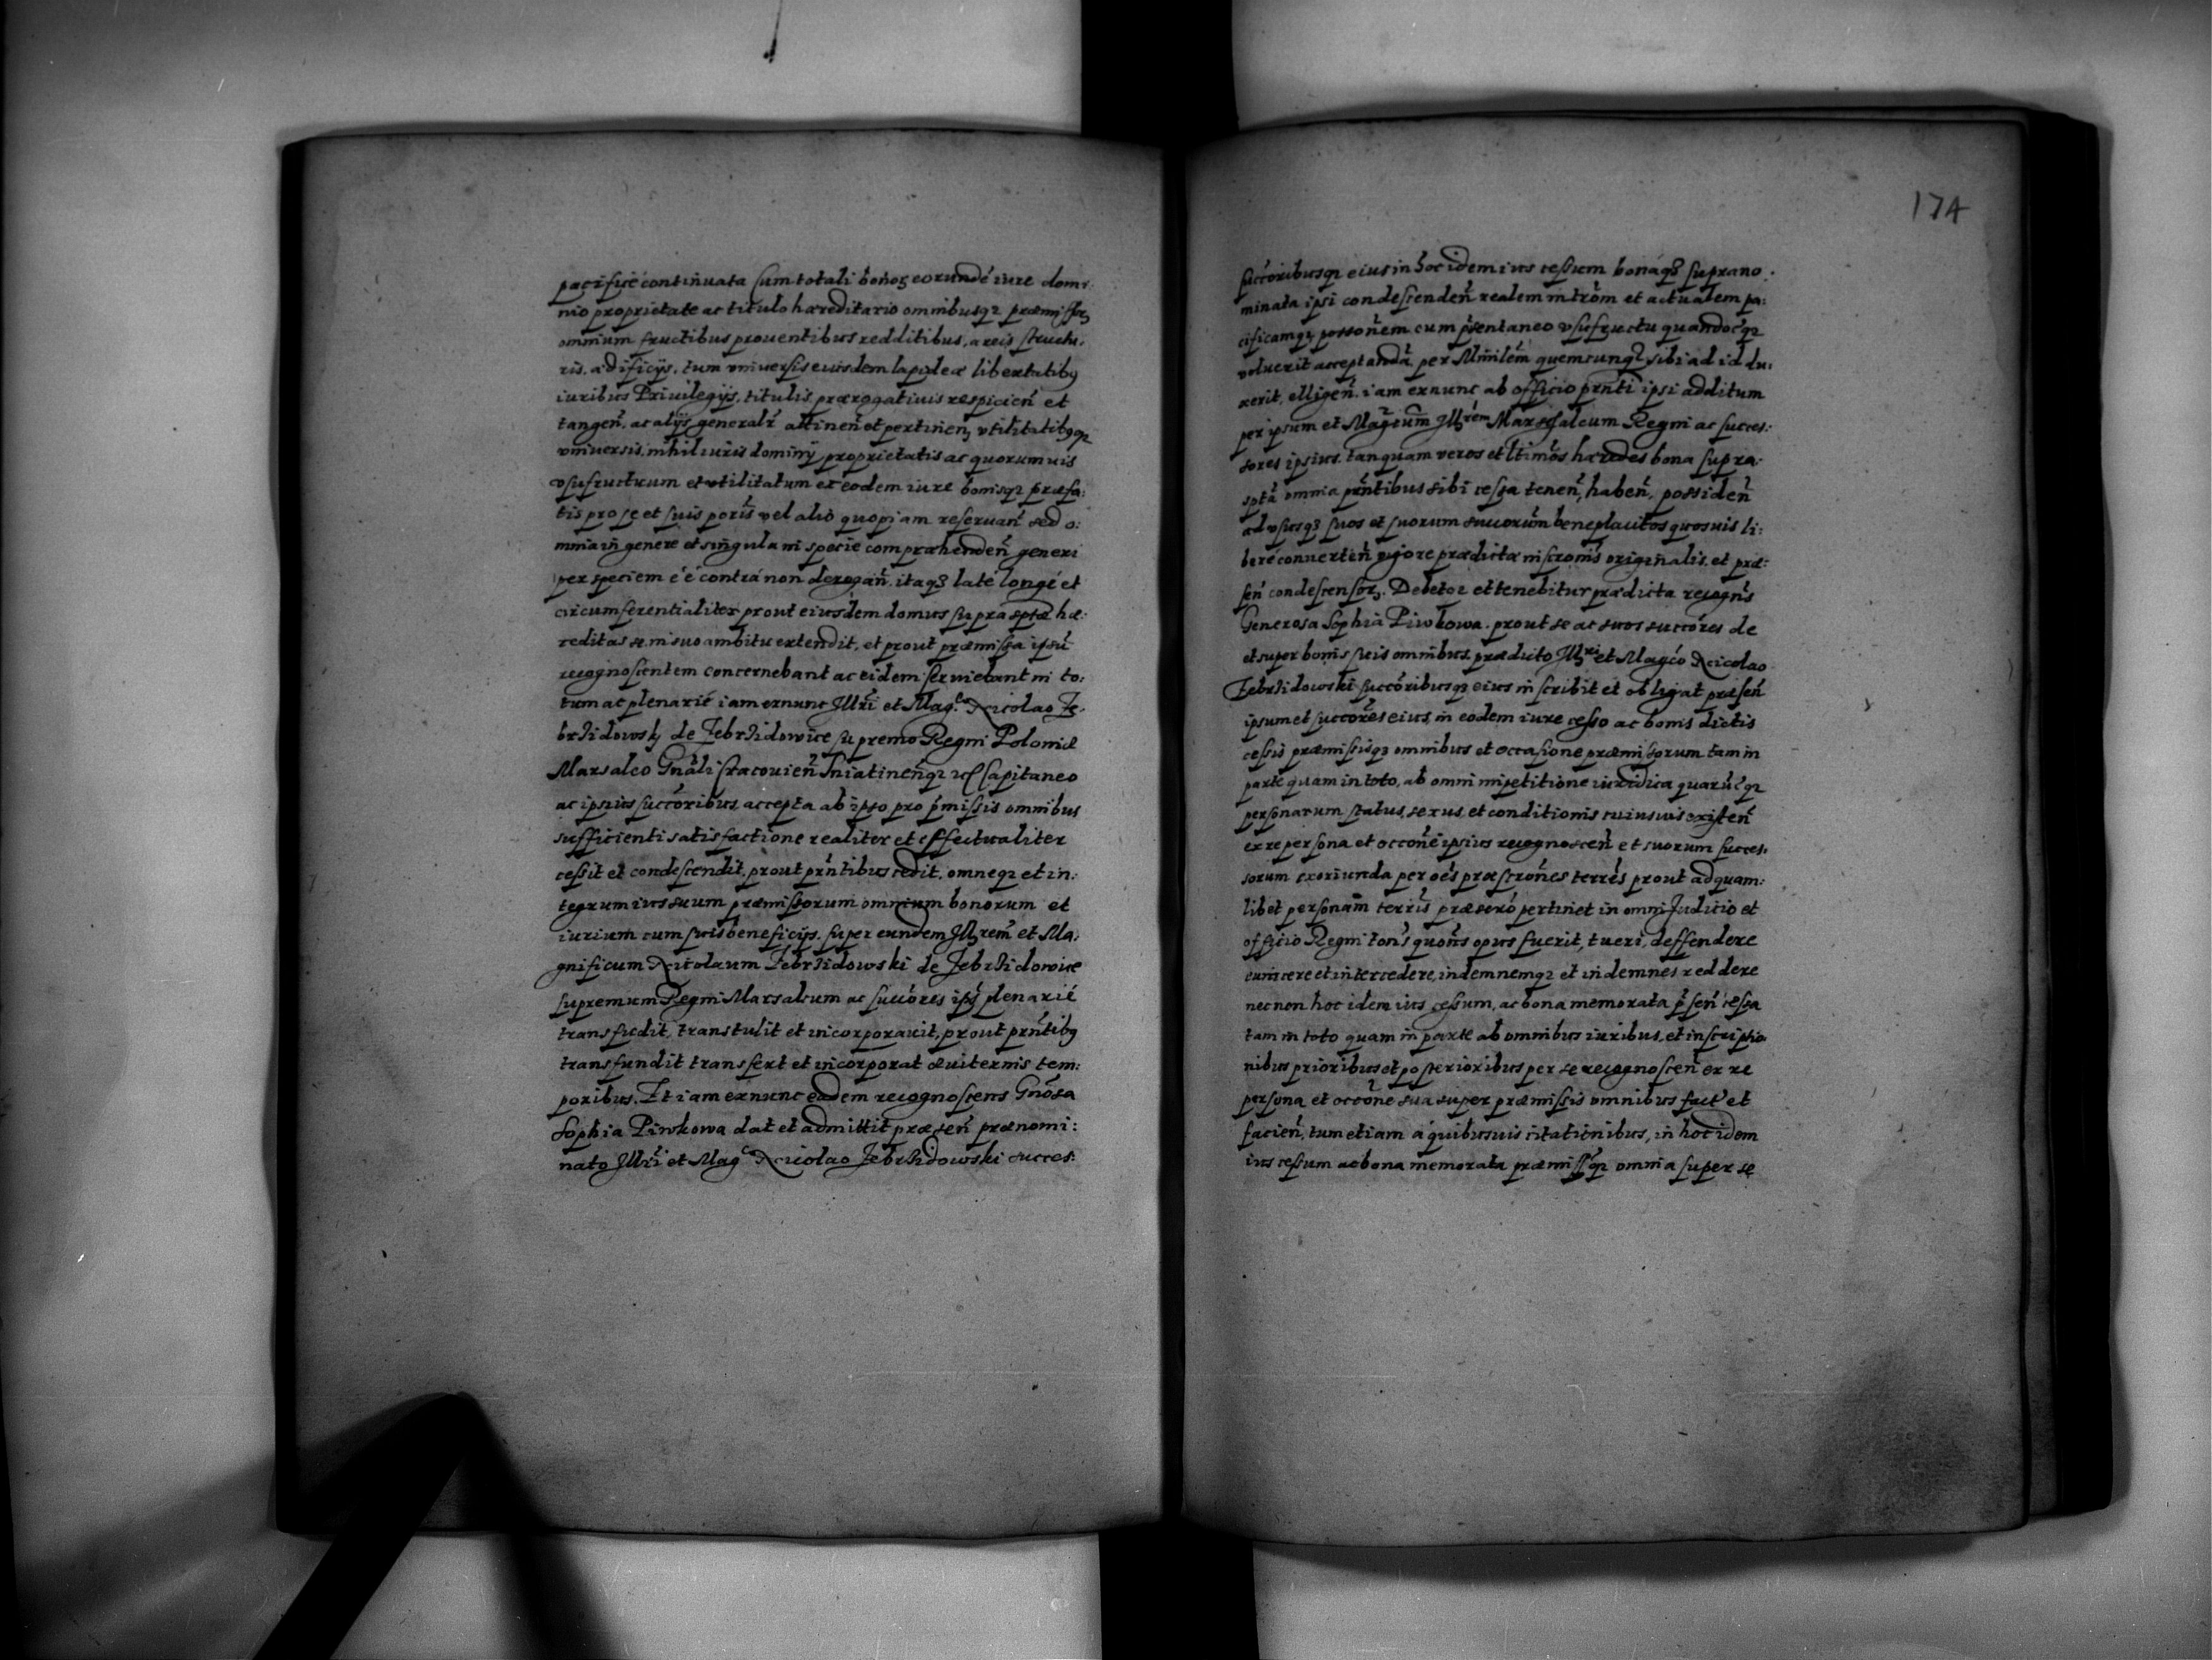 pacifice continuata cum totali bonoꝝ eorundé iure domi:
nio proprietate ac titulo hæreditario omnibusq₂ præmissor₃
omnium fructibus prouentibus redditibus, areis structu:
ris, ædificijs, tum vniuersis eiusdem lapideæ libertatibꝰ
iuribus Priuilegijs, titulis prærogatiuis respicień et
tangeń, ac alijs generalr̃ attineń et pertineń, vtilitatibꝰq₂
vniuersis, nihil iuris dominÿ proprietatis ac quorumuis
vsufructuum et vtilitatum ex eodem iure bonisq₂ præfa:
tis pro se et suis poris̃ vel alio quopiam reseruań sed o:
mnia in genere et singula in specie compræhendeń generi
per speciem é é contrá non derogań, itaq₃ laté longé et
circumferentialiter prout eiusdem domus supra sptæ hæ:
reditas se in suo ambitu extendit, et prout præmissa ipsũ
recognoscentem concernebant ac eidem seruiebant in to:
tum ac plenarié iam exnunc Jllrĩ et Mag.ᶜᵒ Nicolao Ze:
brzidowsky de Zebrzidowice supremo Regni Poloniæ
Marsalco Gnãli Cracouień Sniatineńq₂ zcͤ Capitaneo
ac ipsius succõribus accepta ab ipso pro p̃missis omnibus
sufficienti satisfactione realiter et effectualiter
cessit et condescendit, prout prñtibus cedit, omneq₂ et in:
tegrum ius suum præmissorum omnium bonorum et
iurium cum suis beneficijs, super eundem Jllrem̃ et Ma:
gnificum Nicolaum Zebrzidowski de Zebrzidowice
supremum Regni Marsalcum ac succõres ipsꝰ plenarié
transfudit, transtulit et incorporauit, prout prñtibꝰ
transfundit transfert et incorporat æuiternis tem:
poribus. Et iam exnunc eadem recognoscens Gnõsa
Sophia Piwkowa dat et admittit præseń prænomi:
nato Jllrĩ et Magᶜᵒ Nicolao Zebrzidowski succes:
174
succõribusq₂ eius in hoc idem ius cessum bonaq₃ suprano:
minata ipsi condescendeń realem intrõm et actualem pa:
cificamq₃ possonẽm cum p̃sentaneo vsufructu quandocũq₂
voluerit acceptandã per Mnilẽm quemcunq₃ sibi ad id du:
xerit, elligeń. iam exnunc ab officio prñti ipsi additum
per ipsum et Magcum̃ Jllrem̃ Marschalcum Regni ac succes:
sores ipsius, tanquam veros et ltimõs hæredes bona supra:
sptã omnia prñtibus sibi cessa teneń, habeń, possideń
ad vsusq₃ suos et suorum succorum̃ beneplacitos quosuis li:
beré conuerteń vigore prædictæ inscronis̃ originalis, et præ:
seń condescensor₃. Debeto₂ et tenebitur prædicta recogns̃
Generosa Sophia Piwkowa, prout se ac suos succõres de
et super bonis suis omnibus prædicto Jllrĩ et Magcó Nicolao
Zebrzidowski succõribusq₃ eius inscribit et obligat præseń
ipsum et succõres eius in eodem iure cesso ac bonis dictis
cessis præmissisq₃ omnibus et occasione præmissorum tam in
parte quam in toto, ab omni impetitione iuridica quarũcq₂
personarum status, sexus, et conditionis cuiusuis existeń
ex re persona et occoñe ipsius recognosceń et suorum succes:
sorum exoriunda per oẽs præscrõnes terrẽs prout ad quam:
libet personam̃ terris̃ præscrõ pertinet in omni Judicio et
officio Regni tons̃ quoñs opus fuerit, tueri, deffendere
euincere et intercedere, indemnemq₂ et indemnes reddere
necnon hoc idem ius cessum, ac bona memorata p̃seń cessa
tam in toto quam in parte ab omnibus iuribus, et inscriptio
nibus prioribus et posterioribus per se recognosceń ex re
persona et occoñe sua super præmissis omnibus fact̃ et
facień, tum etiam á quibusuis citationibus, in hoc idem
ius cessum ac bona memorata præmissq₂ omnia super se